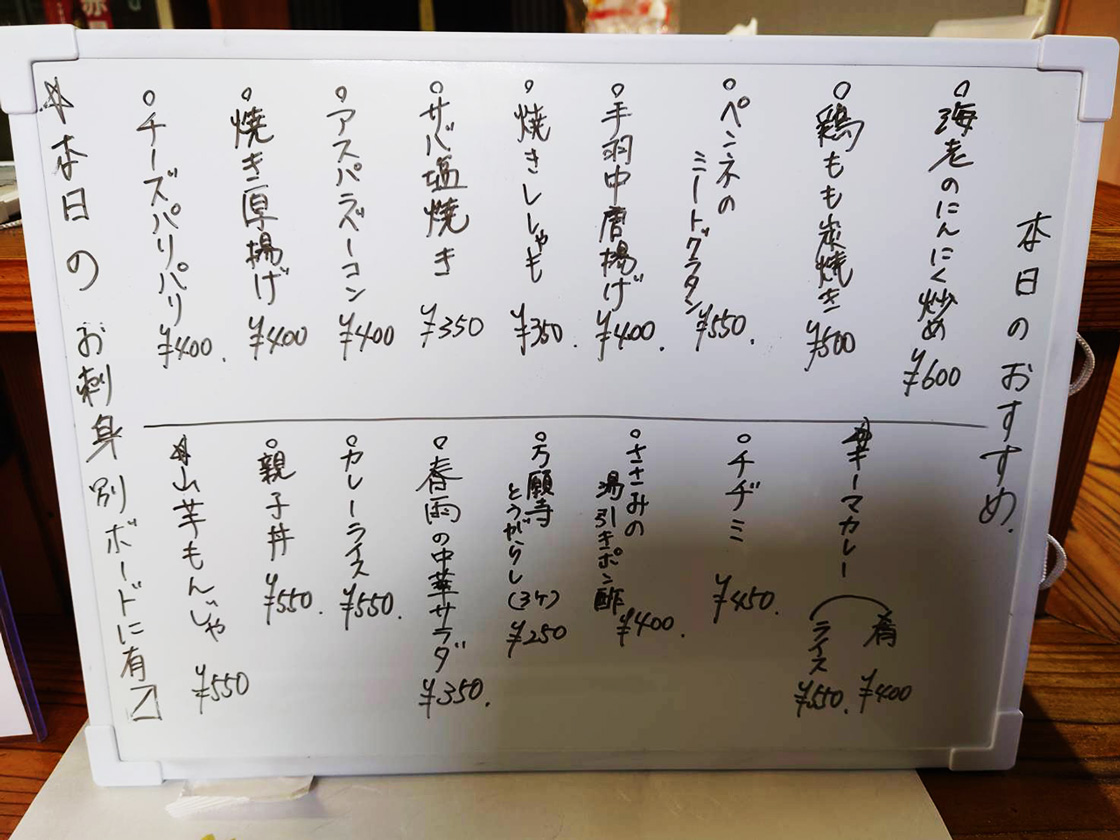 本日のおすすめ.
○海老のにんにく炒め ¥600
○鶏もも炭焼き ¥500
○ペンネの
ミートグラタン ¥550.
○手羽中唐揚げ ¥400.
○焼きししゃも ¥350.
○サバ塩焼き ¥350
○アスパラベーコン ¥400
○焼き厚揚げ ¥400
○チーズパリパリ ¥400.
☆キーマカレー
肴 ¥400
ライス ¥550.
○チヂミ ¥450.
○ささみの
湯引きポン酢 ¥400.
○万願寺
とうがらし(3ケ) ¥250
○春雨の中華サラダ ¥350.
○カレーライス ¥550.
○親子丼 ¥550.
☆山芋もんじゃ ¥550
☆本日のお刺身別ボードに有〼